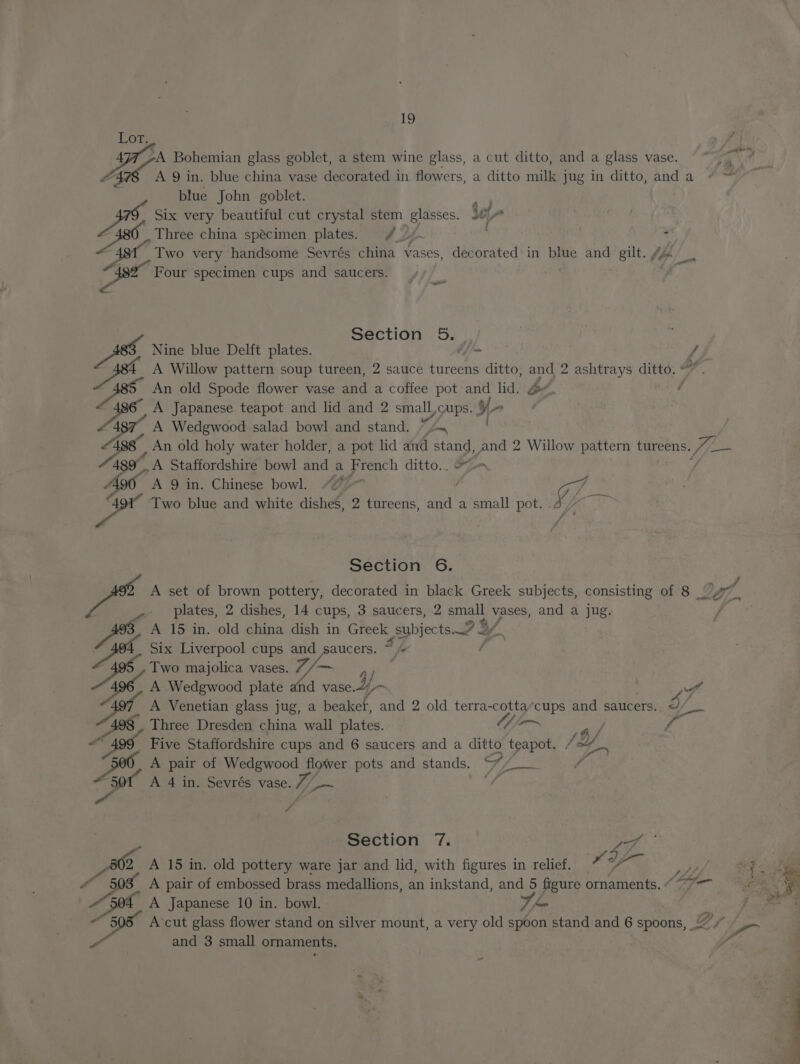 19
Lot.
477 A Bohemian glass goblet, a stem wine glass, a cut ditto, and a glass vase.
478 A 9 in. blue china vase decorated in flowers, a ditto milk jug in ditto, and a
blue John goblet.
479 Six very beautiful cut crystal stem glasses.
480 Three china spècimen plates.
481 Two very handsome Sevrés china vases, decorated in blue and gilt.
482 Four specimen cups and saucers.
Section 5.
483 Nine blue Delft plates.
484 A Willow pattern soup tureen, 2 sauce tureens ditto, and 2 ashtrays ditto.
485 An old Spode flower vase and a coffee pot and lid.
486 A Japanese teapot and lid and 2 small cups.
487 A Wedgwood salad bowl and stand.
488 An old holy water holder, a pot lid and stand, and 2 Willow pattern tureens.
489 A Staffordshire bowl and a French ditto.
490 A 9 in. Chinese bowl.
491 Two blue and white dishes, 2 tureens, and a small pot.
Section 6.
492 A set of brown pottery, decorated in black Greek subjects, consisting of 8
plates, 2 dishes, 14 cups, 3 saucers, 2 small vases, and a jug.
493 A 15 in. old china dish in Greek subjects.
494 Six Liverpool cups and saucers.
495 Two majolica vases.
496 A Wedgwood plate and vase.
497 A Venetian glass jug, a beaker, and 2 old terra-cotta cups and saucers.
498 Three Dresden china wall plates.
499 Five Staffordshire cups and 6 saucers and a ditto teapot.
500 A pair of Wedgwood flower pots and stands.
501 A 4 in. Sevrés vase.
Section 7.
502 A 15 in. old pottery ware jar and lid, with figures in relief.
503 A pair of embossed brass medallions, an inkstand, and 5 figure ornaments.
504 A Japanese 10 in. bowl.
505 A cut glass flower stand on silver mount, a very old spoon stand and 6 spoons,
and 3 small ornaments.